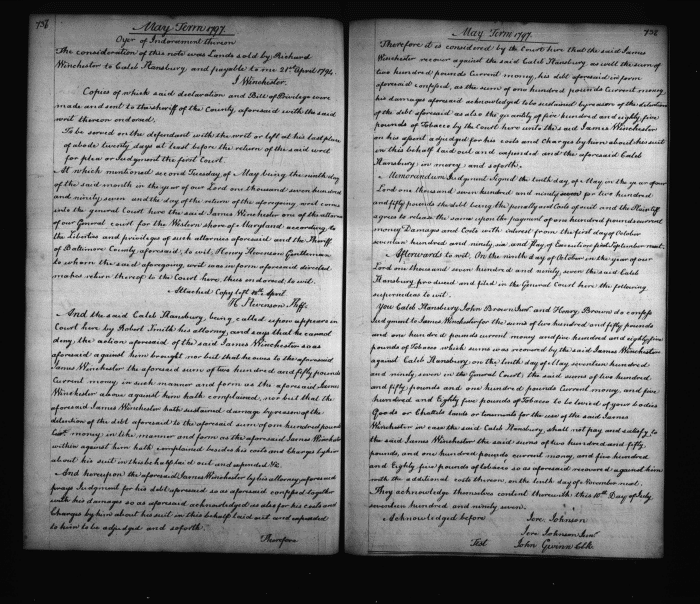 736
May Term 1797.
Oyer of Indorsement thereon
The consideration of this note was Lands sold by Richard
Winchester to Caleb Hansbury, and payable to me 21st April 1794.
J. Winchester.
Copies of which said declaration and Bill of Privilege were
made and sent to the sheriff of the County, aforesaid with the said
writ thereon endorsed.
To be served on the defendant with the writ or left at his last place
of abode twenty days at least before the return of the said writ
for plea or Judgment the first Court.
At which mentioned second Tuesday of May being the ninth day
of the said month in the year of our Lord one thousand seven hundred
and ninety seven and the day of the return of the aforegoing writ comes
into the general Court here the said James Winchester one of the attorneys
of our General court for the Western shore of Maryland according to
the Liberties and privileges of such attornies aforesaid and the Sheriff
of Baltimore County aforesaid, to wit, Henry Stevenson Gentleman
to whom the said aforegoing writ was in form aforesaid directed
makes return thereof to the Court here, thus endorsed to wit.
Attached Copy left 18th April
H. Stevenson Shff.
And the said Caleb Hansbury, being called upon appears in
Court here by Robert Smith his attorney, and says that he cannot
deny, the action aforesaid of the said James Winchester so as
aforesaid against him brought nor but that he owes to the aforesaid
James Winchester the aforesaid sum of two hundred and fifty pounds
Current money, in such manner and form as the aforesaid James
Winchester above against him hath complained, nor but that the
aforesaid James Winchester hath sustained damage by reason of the
detention of the debt aforesaid to the aforesaid sum of one hundred pounds
Curt. money, in like manner and form as the aforesaid James Winchester
within against him hath complained besides his costs and Charges by him
about his suit in this behalf laid out and expended &c.
And hereupon the aforesaid James Winchester by his attorney, aforesaid
prays Judgment for his debt aforesaid so as aforesaid confessed together
with his damages so as aforesaid acknowledged as also for his costs and
Charges by him about his suit in this behalf laid out and expended
to him to be adjudged and soforth.
Therefore
May Term 1797.
Therefore it is considered by the Court here that the said James
Winchester recover against the said Caleb Hansbury, as well the sum of
two hundred pounds Current money, his debt aforesaid in form
aforesaid confessed, as the sum of one hundred pounds Current money
his damages aforesaid acknowledged to be sustained by reason of the detention
of the debt aforesaid as also the quantity of five hundred and eighty five
pounds of Tobacco by the Court here unto the said James Winchester
on his assent adjudged for his costs and Charges by him about his suit
in this behalf laid out and expended and the aforesaid Caleb
Hansbury in mercy and soforth.
Memorandum Judgment Signed the tenth day of May in the year of our
Lord one thousand seven hundred and ninety seven for two hundred
and fifty pounds the debt being the penalty and Costs of suit and the Plaintiff
agrees to release the same upon the payment of one hundred pounds current
money Damages and Costs with interest from the first day of October
seventeen hundred and ninety six and Stay of Execution until September next.
Afterwards to wit. On the ninth day of October in the year of our
Lord one thousand seven hundred and ninety seven the said Caleb
Hansbury produced and filed in the General Court here the following
supersedeas to wit.
You Caleb Hansbury John Brown Junr and Henry Brown do confess
Judgment to James Winchester for the sums of two hundred and fifty pounds
and one hundred pounds current money and five hundred and eighty five
pounds of Tobacco which sums was recovered by the said James Winchester
against Caleb Hansbury on the tenth day of May seventeen hundred
and ninety seven in the General Court, the said sums of two hundred
and fifty pounds and one hundred pounds Current money, and five
hundred and Eighty five pounds of Tobacco to be levied of your bodies
Goods or Chattels lands or tenements for the use of the said James
Winchester in case the said Caleb Hansbury, shall not pay and satisfy to
the said James Winchester the said sums of two hundred and fifty
pounds, and one hundred pounds current money, and five hundred
and Eighty five pounds of tobacco so as aforesaid recovered against him
with the additional costs thereon, on the tenth day of November next.
They acknowledge themselves content therewith this 10th Day of July
seventeen hundred and ninety seven.
Acknowledged before Jere. Johnson
Jere Johnson Junr
Test John Gwinn Clk